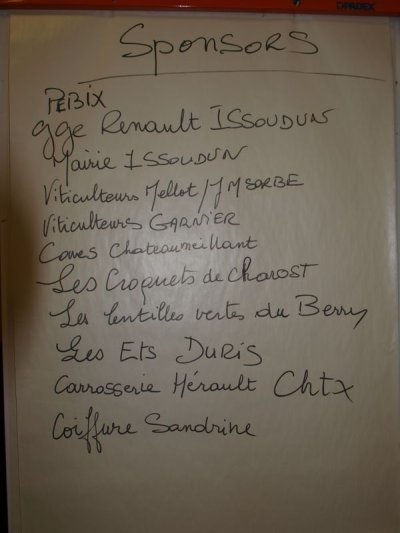 Sponsors
PEBIX
gge Renault ISSOUDUN
Mairie ISSOUDUN
Viticulteurs Mellot/JM SORBE
Viticulteurs GARNIER
Caves Chateaumeillant
Les Croquets de Charost
Les lentilles vertes du Berry
Les Ets DURIS
Carrosserie Hérault Chtx
Coiffure Sandrine